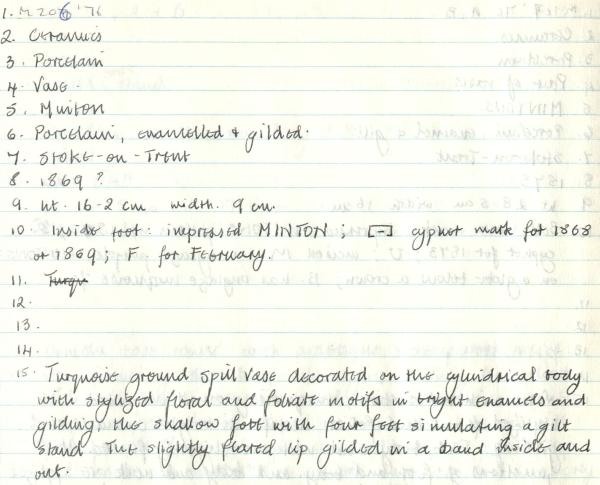 1. M 206 '76
2. Ceramics
3. Porcelain
4. Vase.
5. Minton
6. Porcelain, enamelled & gilded.
7. Stoke-on-Trent
8. 1869?
9. ht. 16-2 cm width. 9 cm.
10. Inside foot: impressed MINTON; [-] cypher mark for 1868
or 1869; F for February.
11. Turqu
12.
13.
14.
15. Turquoise ground spill vase decorated on the cylindrical body
with stylized floral and foliate motifs in bright enamels and
gilding, the shallow foot with four feet simulating a gilt
stand. The slightly flared lip gilded in a band inside and
out.